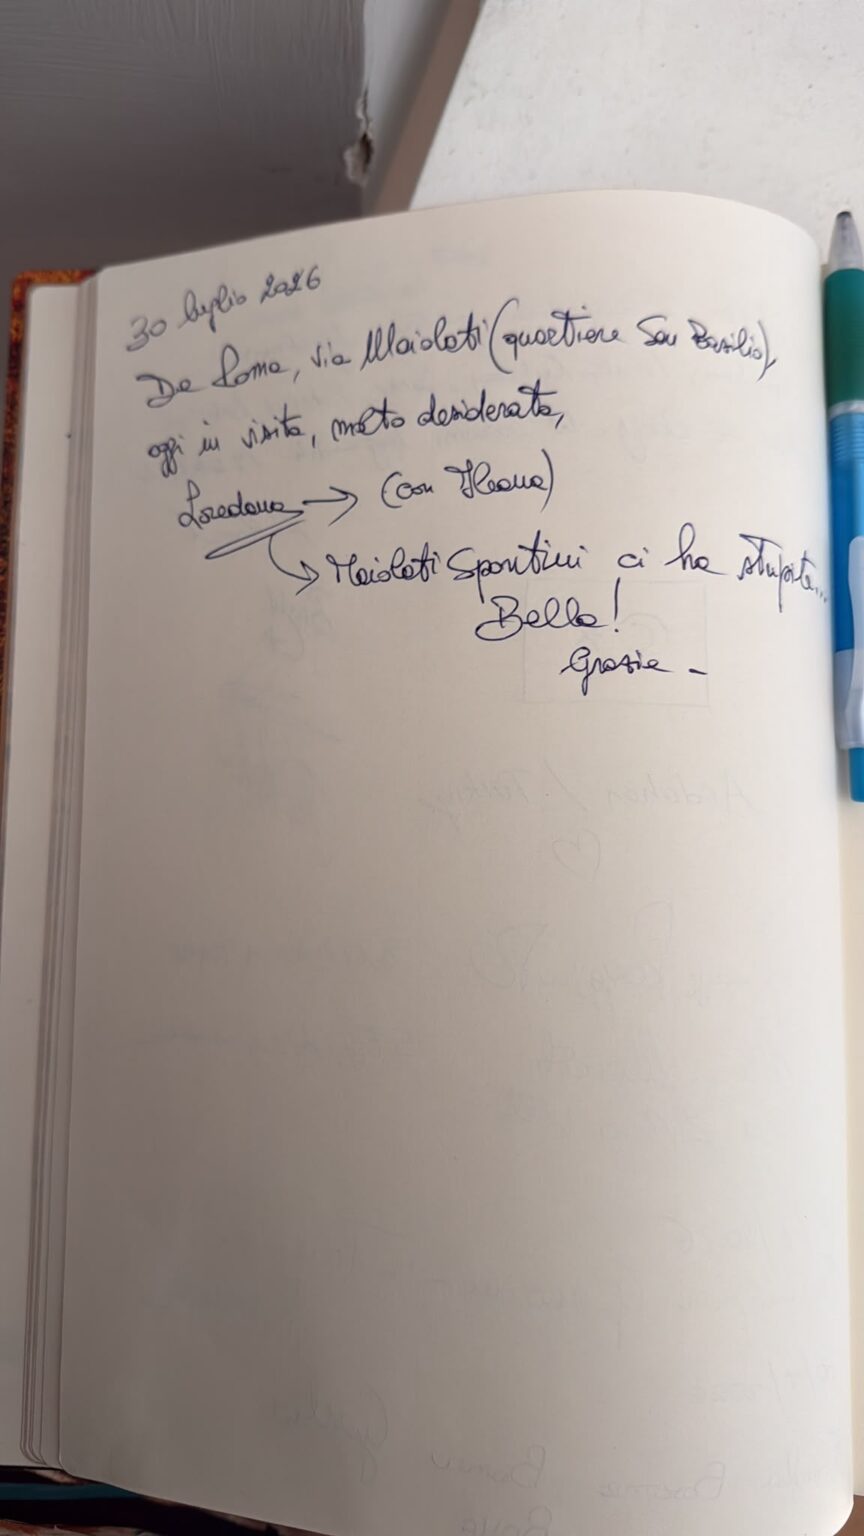 30 luglio 2026
Da Roma, via Maiolati (quartiere San Basilio),
oggi in visita, molto desiderata,
Loredana → (con Ileana)
→ Maiolati Spontini ci ha stupita...
Bella!
Grazie -